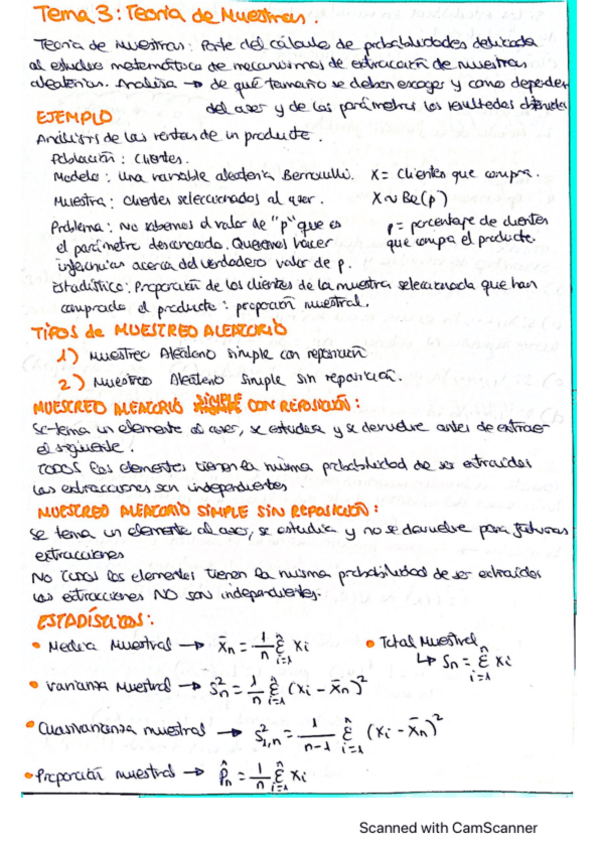 Tema 3: Teoría de Muestras.
Teoría de Muestras: Parte del cálculo de probabilidades dedicada
al estudio matemático de mecanismos de extracción de muestras
aleatorias. Analiza → de qué tamaño se deben escoger y como dependen
del azar y de los parámetros los resultados obtenidos
EJEMPLO
Análisis de las ventas de un producto.
Población: Clientes.
Modelo: Una variable aleatoria Bernoulli. X = Clientes que compra.
Muestra: Clientes seleccionados al azar. X ~ Be(p)
Problema: No sabemos el valor de "p" que es p = porcentaje de clientes
el parámetro desconocido. Queremos hacer que compra el producto
inferencias acerca del verdadero valor de p.
Estadístico: Proporción de los clientes de la muestra seleccionada que han
comprado el producto: proporción muestral.
TIPOS de MUESTREO ALEATORIO
1) Muestreo Aleatorio simple con reposición
2) Muestreo Aleatorio simple sin reposición.
MUESTREO ALEATORIO SIMPLE CON REPOSICIÓN:
Se toma un elemento al azar, se estudia y se devuelve antes de extraer
el siguiente.
TODOS los elementos tienen la misma probabilidad de ser extraídos
Las extracciones son independientes
MUESTREO ALEATORIO SIMPLE SIN REPOSICIÓN:
Se toma un elemento al azar, se estudia y no se devuelve para futuras
extracciones
NO TODOS los elementos tienen la misma probabilidad de ser extraídos
Las extracciones NO son independientes.
ESTADÍSTICOS:
• Media Muestral → x̄n = 1/n Σ i=1 n xi • Total Muestral
↳ Sn = Σ i=1 n xi
• Varianza Muestral → S²n = 1/n Σ i=1 n (xi - x̄n)²
• Cuasivarianza muestral → S²1,n = 1/n-1 Σ i=1 n (xi - x̄n)²
• Proporción muestral → p̂n = 1/n Σ i=1 n xi
Scanned with CamScanner